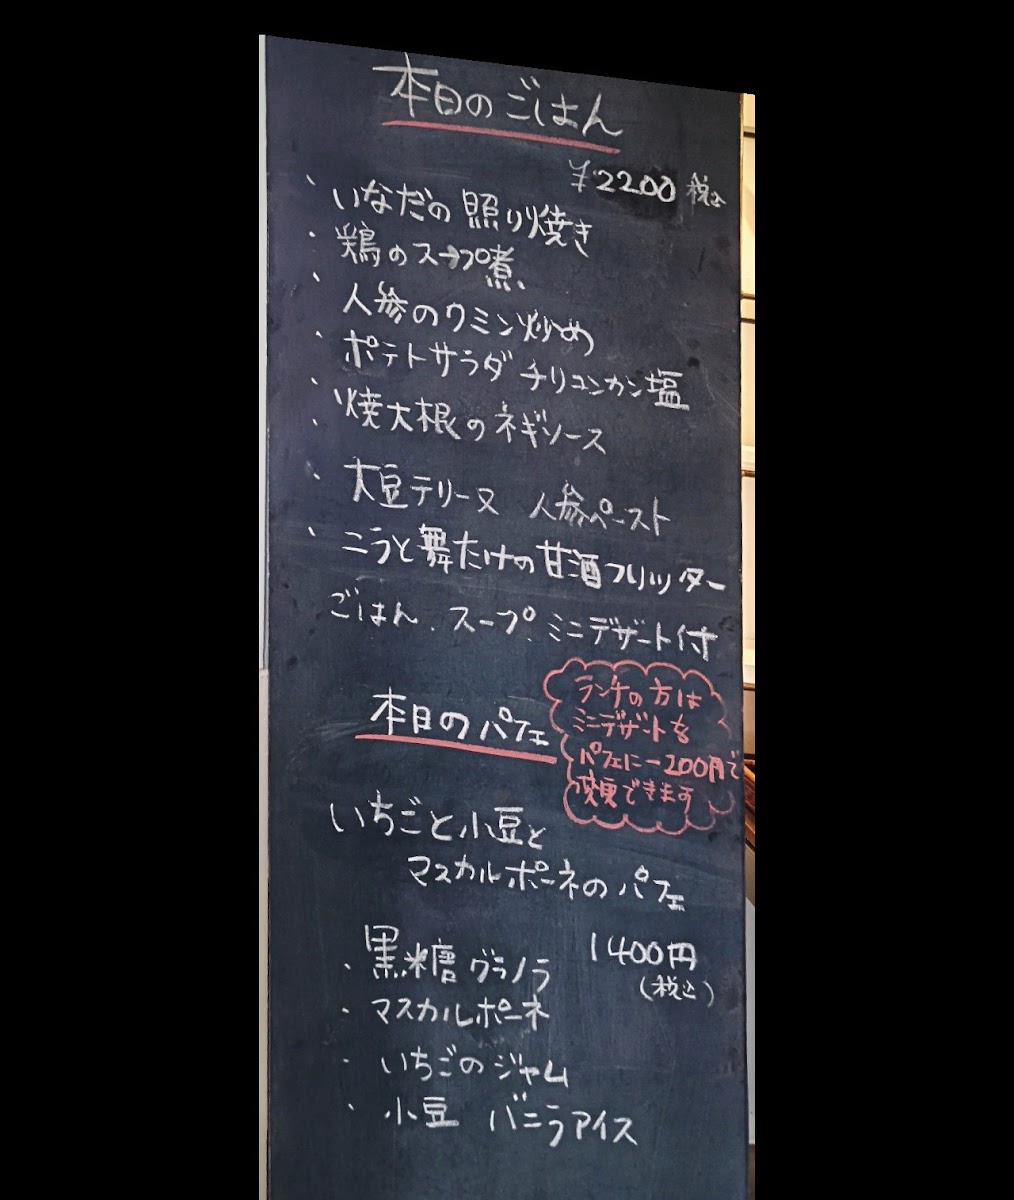 本日のごはん
¥2200 税込
・いなだの照り焼き
・鶏のスープ煮
・人参のクミン炒め
・ポテトサラダ チリコンカン塩
・焼大根のネギソース
・大豆テリーヌ 人参ペースト
・ニラと舞たけの甘酒フリッター
ごはん、スープ、ミニデザート付
本日のパフェ
ランチの方は
ミニデザートを
パフェに-200円で
変更できます
いちごと小豆と
マスカルポーネのパフェ
1400円
(税込)
・黒糖グラノラ
・マスカルポーネ
・いちごのジャム
・小豆 バニラアイス